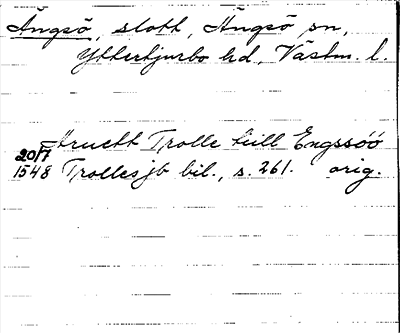 Ängsö, slott, Ängsö sn,
Yttertjurbo hd, Västm. l.
Aruett Trolle tiill Engssöö
20/7
1548 Trollesjb bil., s. 261. orig.